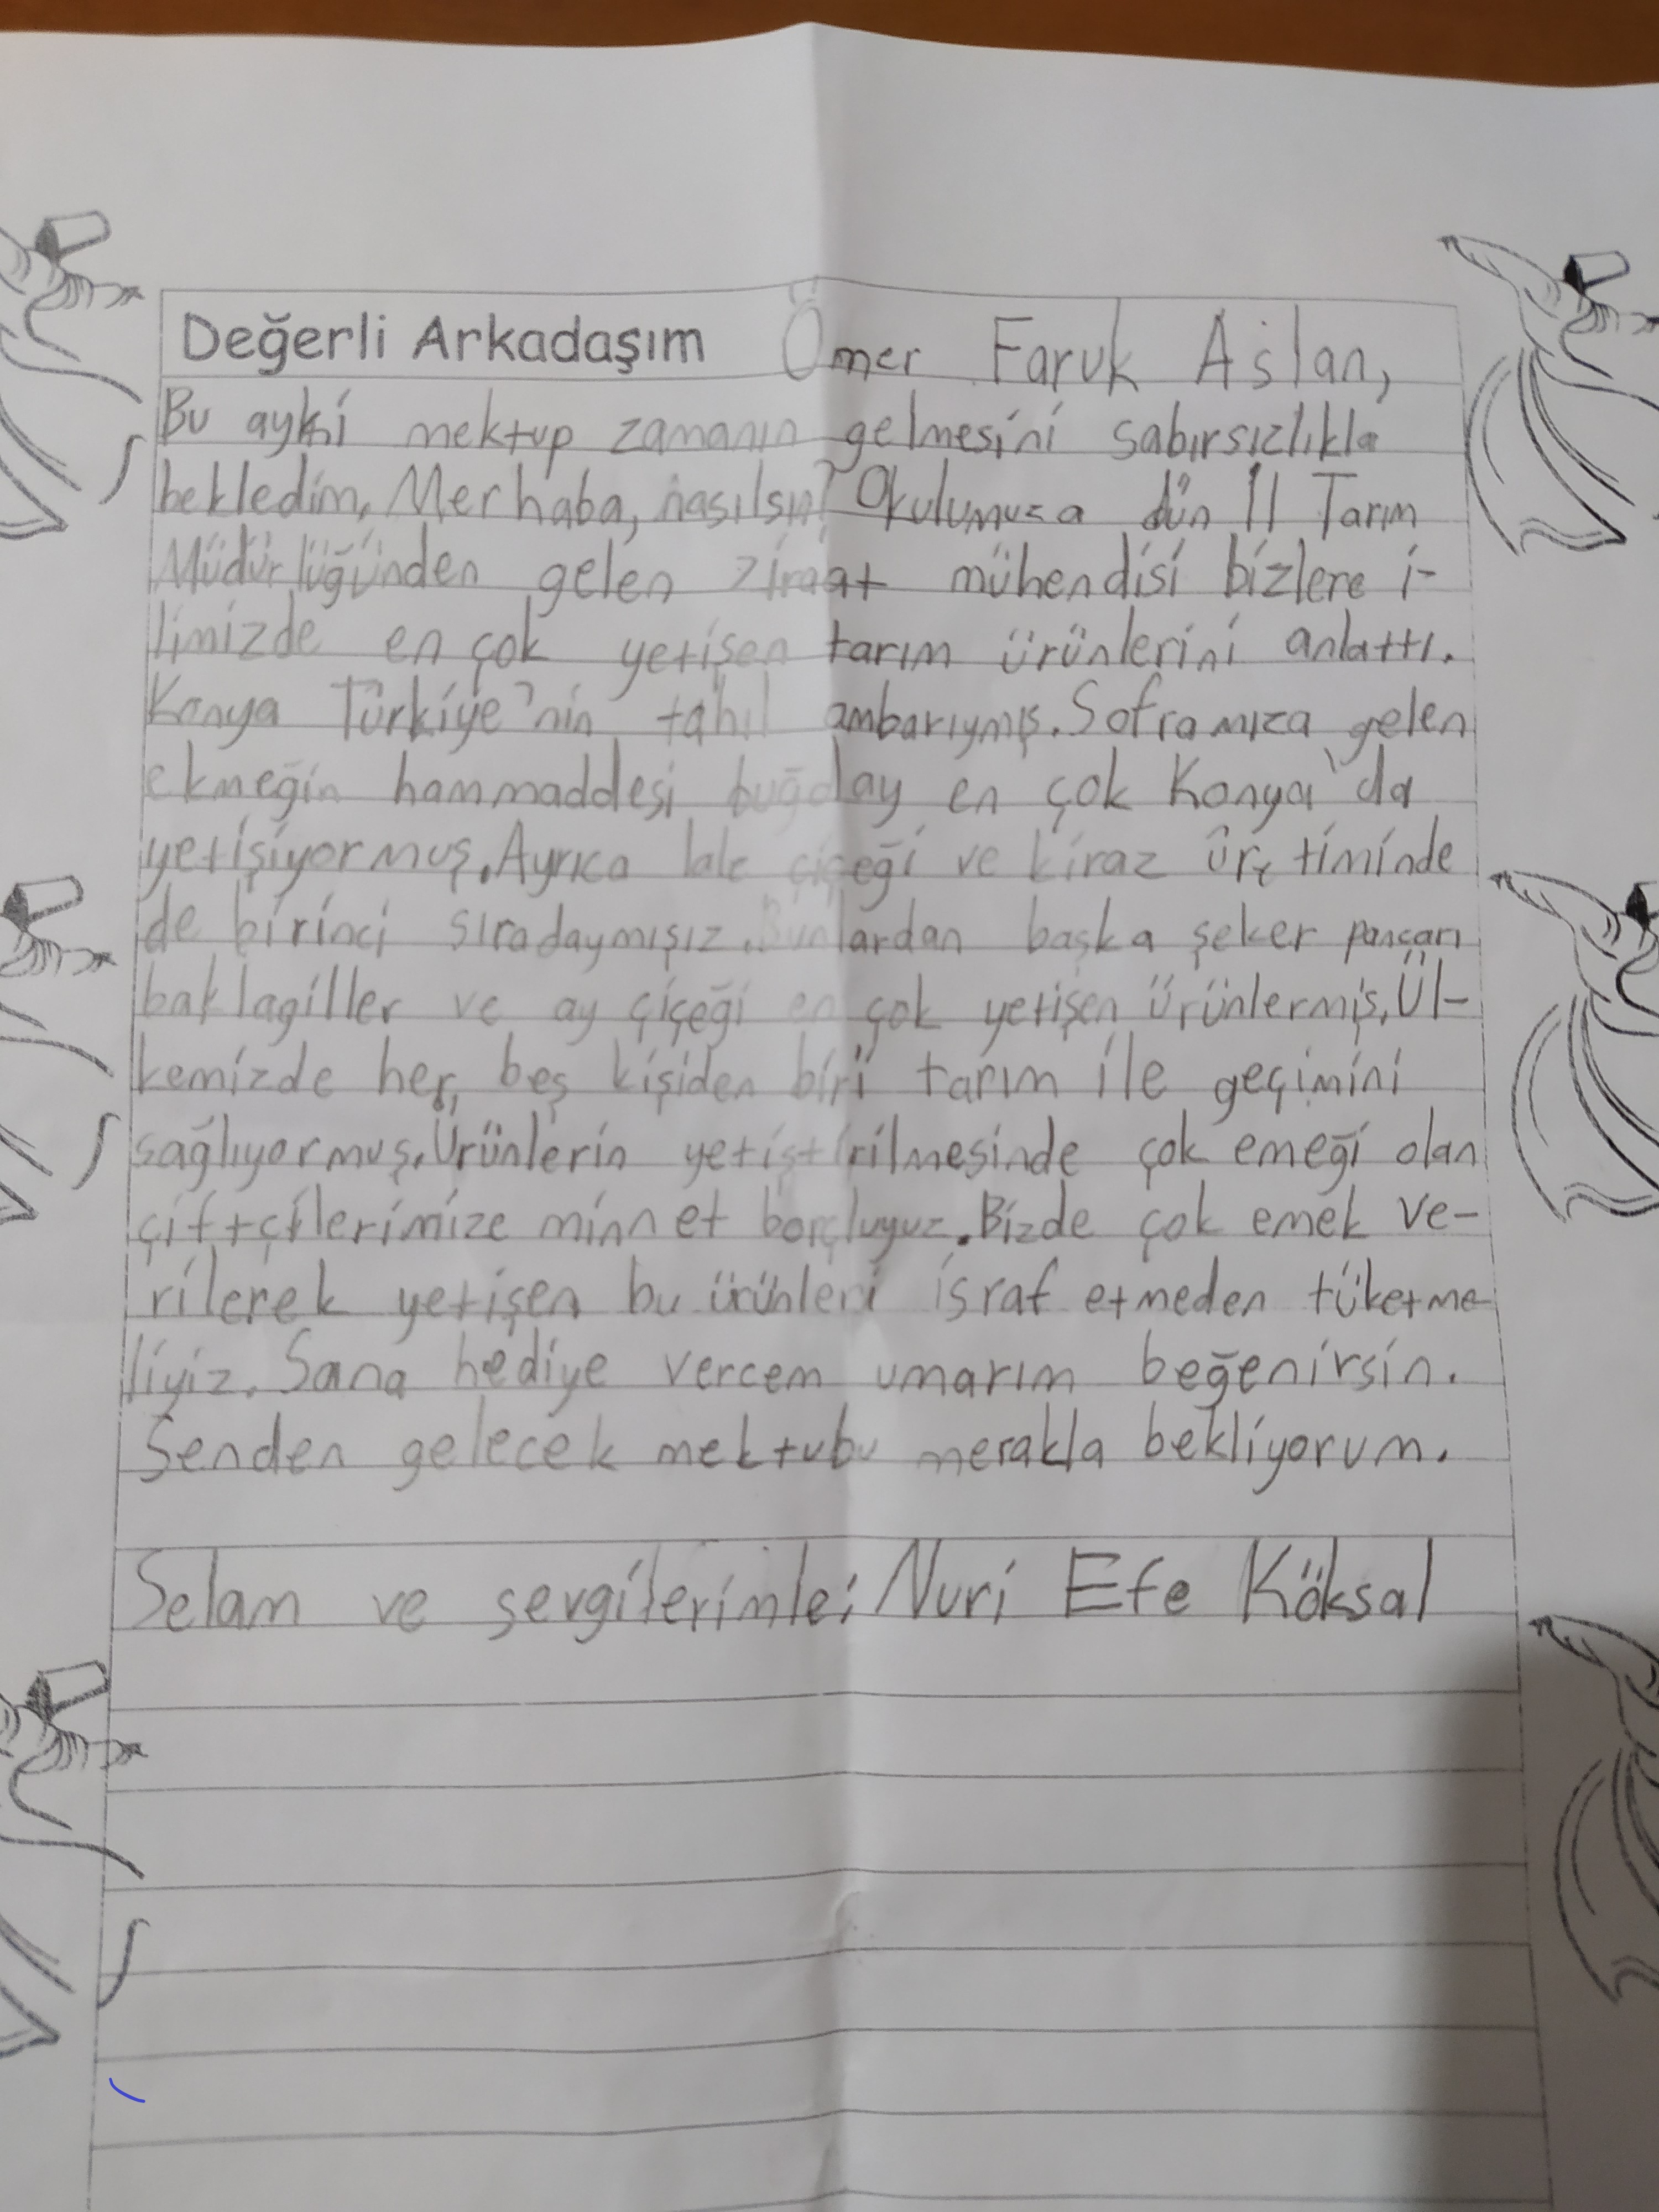 Değerli Arkadaşım Ömer Faruk Aslan,
Bu ayki mektup zamanın gelmesini sabırsızlıkla
bekledim. Merhaba, nasılsın? Okulumuza dün İl Tarım
Müdürlüğünden gelen ziraat mühendisi bizlere i-
limizde en çok yetişen tarım ürünlerini anlattı.
Konya Türkiye'nin tahıl ambarıymış. Soframıza gelen
ekmeğin hammaddesi buğday en çok Konya'da
yetişiyormuş. Ayrıca lale çiçeği ve kiraz üretiminde
de birinci sıradaymışız. Bunlardan başka şeker pancarı
baklagiller ve ay çiçeği en çok yetişen ürünlermiş. Ül-
kemizde her beş kişiden biri tarım ile geçimini
sağlıyormuş. Ürünlerin yetiştirilmesinde çok emeği olan
çiftçilerimize minnet borçluyuz. Bizde çok emek ve-
rilerek yetişen bu ürünleri israf etmeden tüketme-
liyiz. Sana hediye vercem umarım beğenirsin.
Senden gelecek mektubu merakla bekliyorum.
Selam ve sevgilerimle: Nuri Efe Köksal